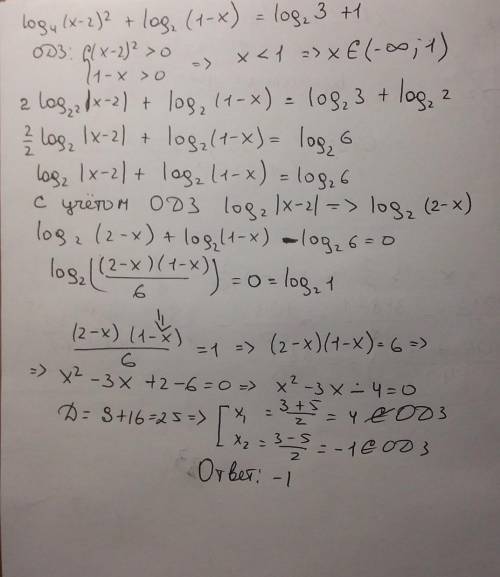 log₄(x-2)² + log₂(1-x) = log₂3 + 1
ОДЗ: {(x-2)² > 0
{1-x > 0 => x < 1 => x ∈ (-∞; 1)
2 log₂₂|x-2| + log₂(1-x) = log₂3 + log₂2
2/2 log₂|x-2| + log₂(1-x) = log₂6
log₂|x-2| + log₂(1-x) = log₂6
с учётом ОДЗ log₂|x-2| => log₂(2-x)
log₂(2-x) + log₂(1-x) - log₂6 = 0
log₂((2-x)(1-x)/6) = 0 = log₂1
⇓
(2-x)(1-x)/6 = 1 => (2-x)(1-x) = 6 =>
=> x² - 3x + 2 - 6 = 0 => x² - 3x - 4 = 0
D = 9+16 = 25 => [x₁ = 3+5/2 = 4 ∉ ОДЗ
[x₂ = 3-5/2 = -1 ∈ ОДЗ
Ответ: -1